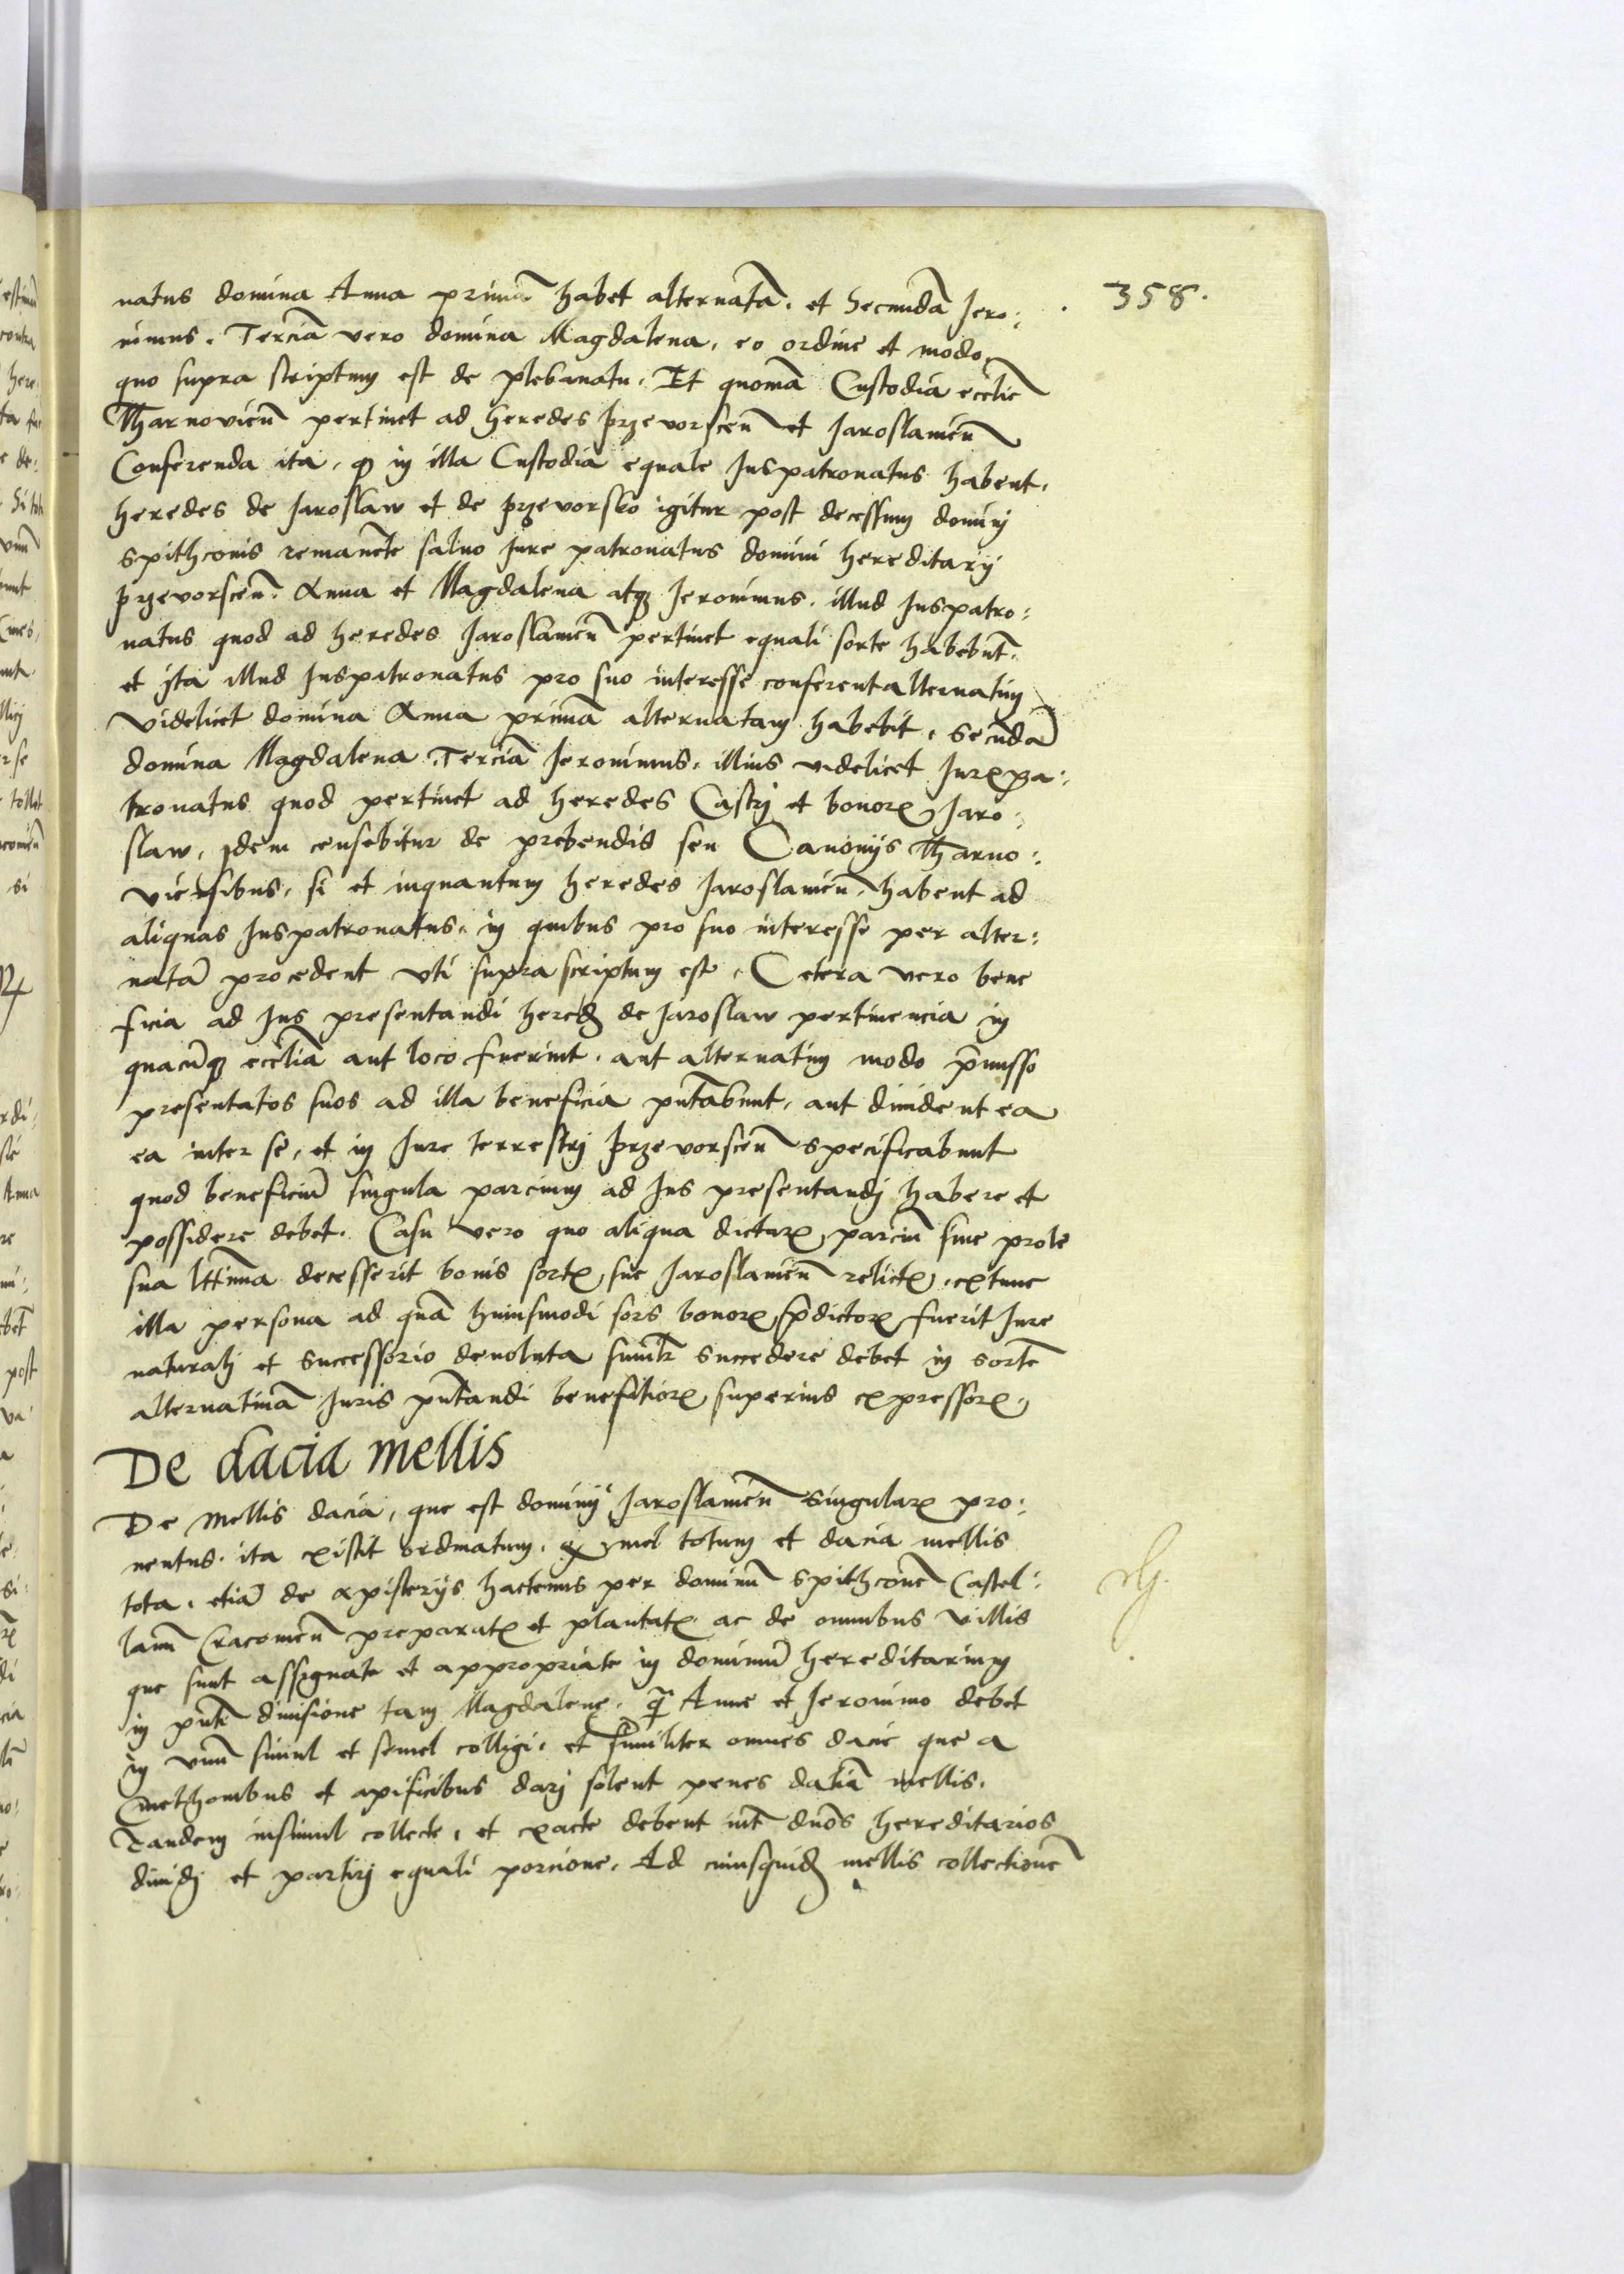 358.
natus domina Anna primã habet alternatã. et Secundã Jero:
nimus. Terciã vero domina Magdalena, eo ordine et modo,
quo supra scriptum est de plebanatu. Et quoniã Custodia ecclie
Tharnovieñ pertinet ad heredes przevorsceñ et Jaroslavieñ
Conferenda ita, q in illa Custodia equale Juspatronatus habent.
heredes de Jaroslaw et de przevorsko igitur post decessum dominj
Spithconis remanẽte salvo Jure patronatus domini hereditarij
przevorsceñ. Anna et Magdalena atq Jeronimus. illud Juspatro:
natus quod ad heredes Jaroslavieñ pertinet equali sorte habebũt.
et ita illud Juspatronatus pro suo interesse conferent alternatim
videlicet domina Anna primã alternatam habebit, Secũdã
domina Magdalena. Terciã Jeronimus. illius videlicet Jurispa:
tronatus quod pertinet ad heredes Castrj et bonorꝝ Jaro:
slaw, jdem censebitur de prebendis seu Canonijs Tharno:
viensibus, si et inquantum heredes Jaroslavieñ. habent ad
aliquas Juspatronatus. in quibus pro suo interesse per alter:
natã procedent vti supra scriptum est. Cetera vero bene
ficia ad Jus presentandi hered de Jaroslaw pertinencia in
quacũq ecclia aut loco fuerint. aut alternatim modo p̃misso
presentatos suos ad illa beneficia pñtabunt, aut dividentea
ea inter se, et in Jure terrestrj przevorsceñ specificabunt
quod beneficiũ singula parcium ad Jus presentandj habere et
possidere debet. Casu vero quo aliqua dictarꝝ parciũ sine prole
sua lttima decesserit bonis sortꝭ sue Jaroslavieñ relictꝭ, extunc
illa persona ad quã huiusmodi sors bonorꝝ p̃dictorꝝ fuerit Jure
naturalj et Successorio devoluta simlr Succedere debet in Sortẽ
alternativã Juris pñtandi benefitiorꝝ superius expressorꝝ
De dacia mellis
De Mellis dacia, que est dominij Jaroslavieñ Singularꝭ pro:
ventus. ita existit ordinatum. q mel totum et dacia mellis
tota. etiã de apisterijs hactenus per dominũ Spithconẽ Castel:
lanũ Cracovieñ preparatꝭ et plantatꝭ. ac de omnibus villis
que sunt assignate et appropriate in dominiũ hereditarium
in pñti divisione tam Magdalene. q̃ Anne et Jeronimo debet
in vnũ simul et semel colligi. et similiter omnes dacie que a
Cmethonibus et apificibus darj solent penes daciã mellis.
Tandem insimul collecte, et exacte debent int dños hereditarios
dividj et partirj equali porcione. Ad cuiusquid mellis collectionẽ